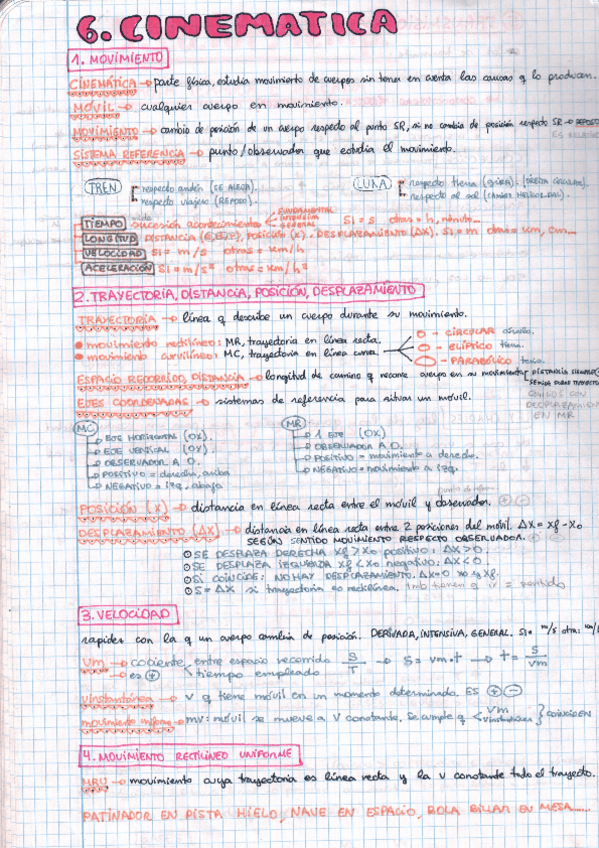 6. CINEMATICA
1. MOVIMIENTO
CINEMÁTICA → parte física, estudia movimiento de cuerpos sin tener en cuenta las causas q lo producen.
MÓVIL → cualquier cuerpo en movimiento.
MOVIMIENTO → cambio de posición de un cuerpo respecto al punto SR, si no cambia de posición respecto SR → REPOSO
ES RELATIVO
SISTEMA REFERENCIA → punto/observador que estudia el movimiento.
TREN respecto andén (SE ALEJA).
respecto viajero (REPOSO).
LUNA respecto tierra (GIRA). (ÓRBITA CIRCULAR).
respecto al sol
TIEMPO sucesión acontecimientos FUNDAMENTAL general SI = s otras = h, minuto...
LONGITUD DISTANCIA POSICIÓN (x). DESPLAZAMIENTO (ΔX). SI = m otras = km, cm...
VELOCIDAD SI = m/s otras = km/h
ACELERACIÓN SI = m/s² otras = km/h²
2. TRAYECTORIA, DISTANCIA, POSICIÓN, DESPLAZAMIENTO
TRAYECTORIA → línea q describe un cuerpo durante su movimiento.
• movimiento rectilíneo: MR, trayectoria en línea recta.
• movimiento curvilíneo: MC, trayectoria en línea curva
O - CIRCULAR
O - ELÍPTICO
O - PARABÓLICO
ESPACIO RECORRIDO, DISTANCIA → longitud de camino q recorre cuerpo en su movimiento
DISTANCIA SIEMPRE
SE MIDE SOBRE TRAYECTORIA
COINCIDE CON DESPLAZAMIENTO EN MR
EJES COORDENADAS → sistemas de referencia para situar un móvil.
MC
→ EJE HORIZONTAL (OX).
→ EJE VERTICAL (OY).
→ OBSERVADOR A O.
→ POSITIVO = derecha, arriba
→ NEGATIVO = izq, abajo
MR
→ 1 EJE (OX)
→ OBSERVADOR A O.
→ POSITIVO = movimiento a derecha.
→ NEGATIVO = movimiento a izq.
POSICIÓN (X) → distancia en línea recta entre el móvil y observador. + -
DESPLAZAMIENTO (ΔX) → distancia en línea recta entre 2 posiciones del móvil. ΔX = Xf - X0
SEGÚN SENTIDO MOVIMIENTO RESPECTO OBSERVADOR.
SE DESPLAZA DERECHA Xf > X0 positivo: ΔX > 0.
SE DESPLAZA IZQUIERDA Xf < X0 negativo: ΔX < 0.
SI COINCIDE: NO HAY DESPLAZAMIENTO. ΔX = 0 X0 y Xf.
S = ΔX si trayectoria es rectilínea.
3. VELOCIDAD
rapidez con la q un cuerpo cambia de posición. DERIVADA, INTENSIVA, GENERAL. SI = m/s otra: km/h
Vm → cociente entre espacio recorrido S/T → S = vm·t → t = S/vm
→ es + tiempo empleado
Vinstantánea → v q tiene móvil en un momento determinado. ES + -
movimiento uniforme → mv: móvil se mueve a V constante. Se cumple q Vm Vinstantánea } COINCIDEN
4. MOVIMIENTO RECTILINEO UNIFORME
MRU → movimiento cuya trayectoria es línea recta y la v constante todo el trayecto.
PATINADOR EN PISTA HIELO, NAVE EN ESPACIO, BOLA BILLAR EN MESA.....